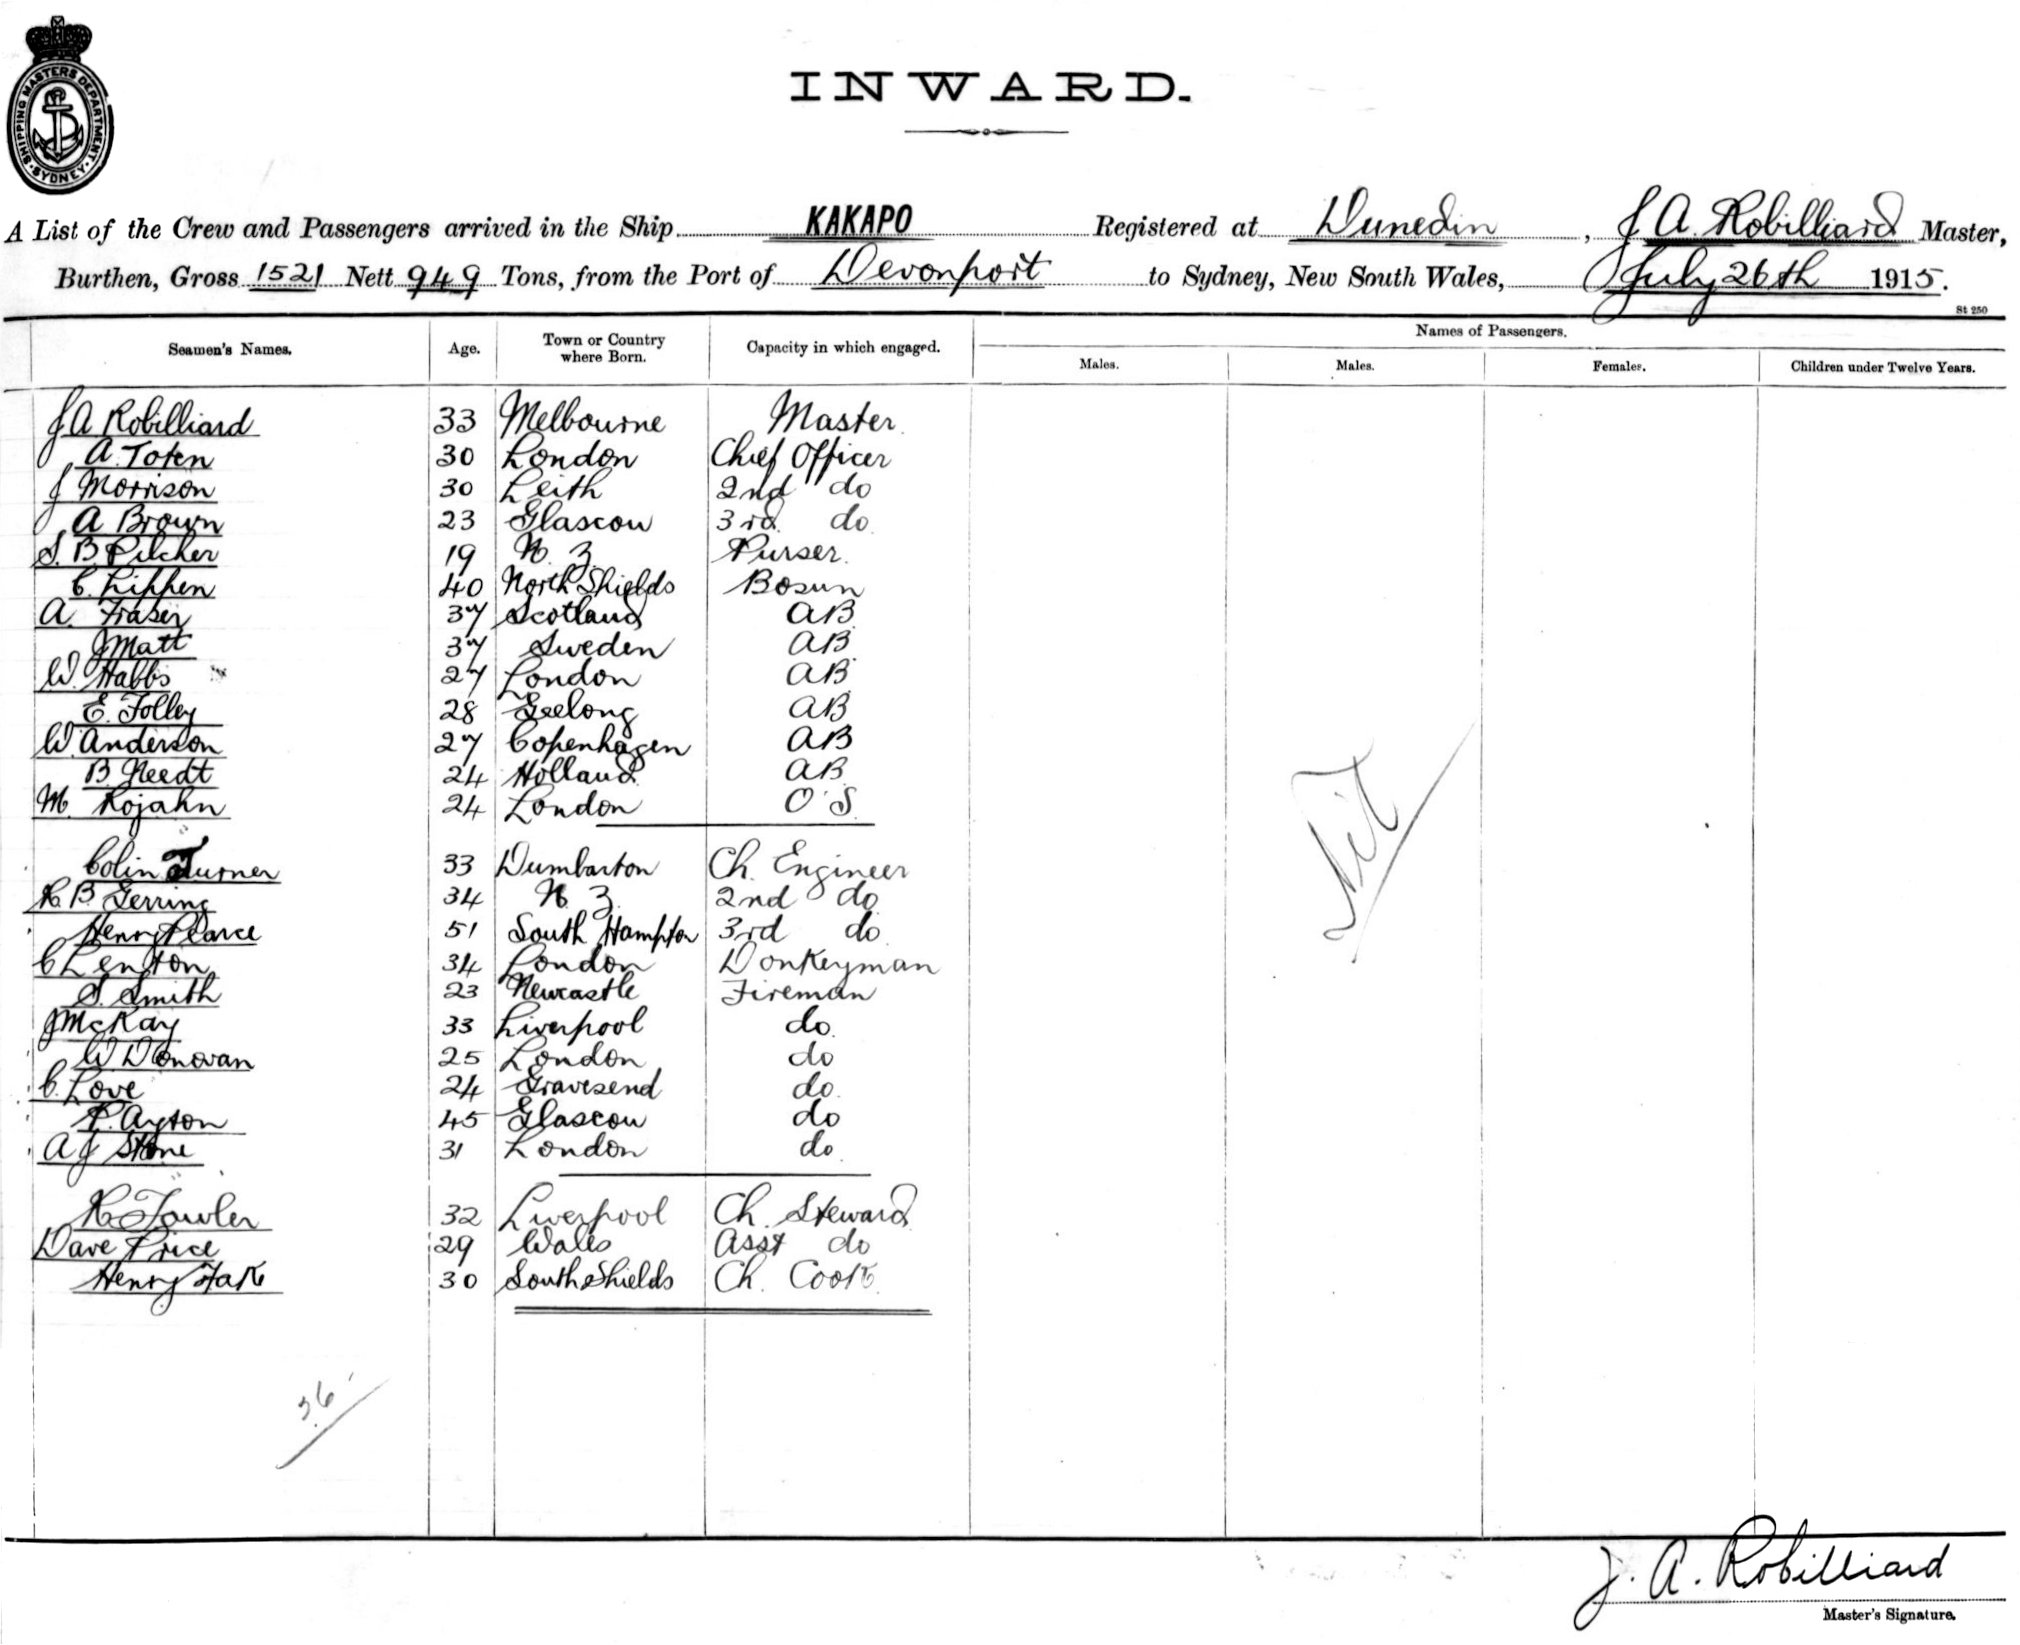 SHIPPING MASTERS DEPARTMENT · SYDNEY ·
INWARD.
A List of the Crew and Passengers arrived in the Ship KAKAPO Registered at Dunedin, J A. Robilliard Master,
Burthen, Gross 1521 Nett 949 Tons, from the Port of Devonport to Sydney, New South Wales, July 26th 1915.
St 250
Seamen's Names. Age. Town or Country where Born. Capacity in which engaged. Names of Passengers.
Males. Males. Females. Children under Twelve Years.
J A Robilliard 33 Melbourne Master
A. Toten 30 London Chief Officer
J Morrison 30 Leith 2nd do
A Brown 23 Glascow 3rd do
S. B. Pilcher 19 N. Z. Purser.
C. Lippen 40 North Shields Bosun
A. Fraser 37 Scotland AB
J Matt 37 Sweden AB
W. Habbs 27 London AB
E. Folley 28 Geelong AB
W. Anderson 27 Copenhagen AB
B. Needt 24 Holland AB
M. Rojahn 24 London O S
Colin Turner 33 Dumbarton Ch. Engineer
B. Gerring 34 N. Z. 2nd do
Henry Pearce 51 South Hampton 3rd do
C Lenton 34 London Donkeyman
S. Smith 23 Newcastle Fireman
J McKay 33 Liverpool do
W Donovan 25 London do
C. Love 24 Gravesend do
P. Ayton 45 Glascow do
A J Stone 31 London do
Fowler 32 Liverpool Ch. Steward
Dave Price 29 Wales Asst do
Henry Fak 30 South Shields Ch. Cook
Nil
36
J. A. Robilliard
Master's Signature.